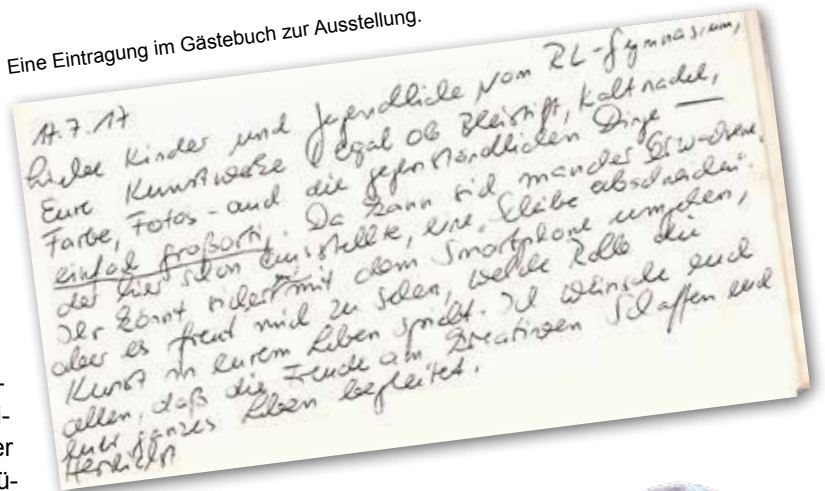 Eine Eintragung im Gästebuch zur Ausstellung.
17.7.17
Liebe Kinder und Jugendliche vom RL-Gymnasium,
Eure Kunstwerke (egal ob Bleistift, Kaltnadel,
Farbe, Fotos - auch die gegenständlichen Dinge —
einfach großartig. Da kann sich mancher Erwachsene,
der hier schon ausstellte, eine „Scheibe abschneiden“.
Ihr könnt sicher mit dem Smartphone umgehen,
aber es freut mich zu sehen, welche Rolle die
Kunst in eurem Leben spielt. Ich wünsche euch
allen, daß die Freude am kreativen Schaffen euch
euer ganzes Leben begleitet.
Herzlichst
-
i-
er
ü-